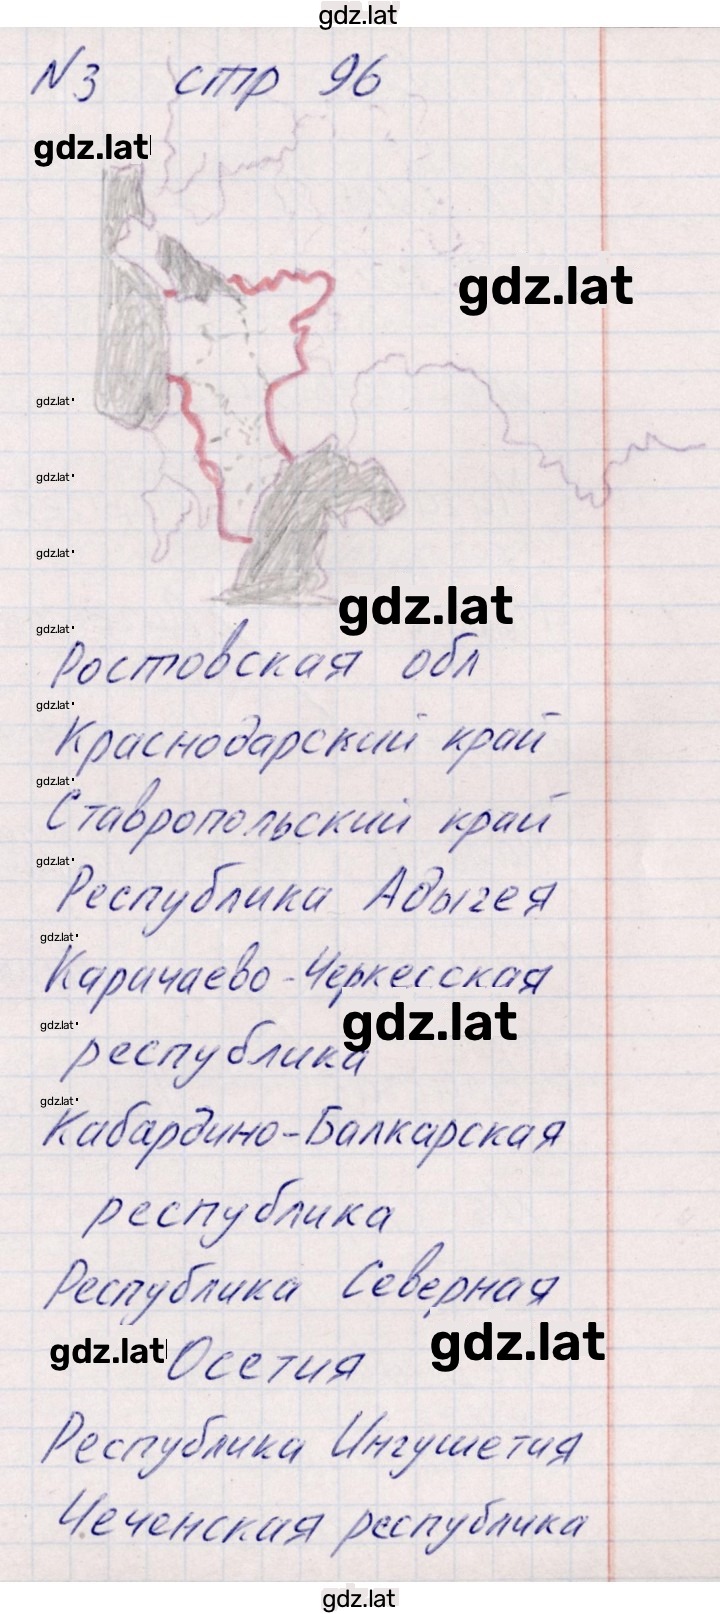 gdz.lat
N3 стр 96
gdz.lat
gdz.lat
gdz.lat
gdz.lat
gdz.lat
gdz.lat
gdz.lat
Ростовская обл
gdz.lat
Краснодарский край
gdz.lat
Ставропольский край
gdz.lat
Республика Адыгея
gdz.lat
Каричаево-Черкесская
gdz.lat
gdz.lat
республика
gdz.lat
Кабардино-Балкарская
республика
Республика Северная
gdz.lat Осетия gdz.lat
Республика Ингушетия
Чеченская республика
gdz.lat